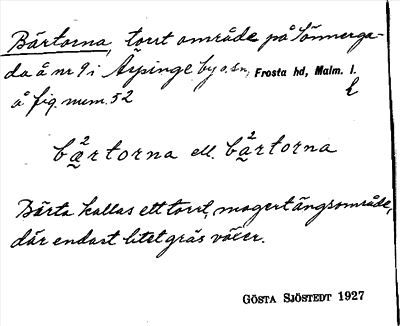 Bärtorna, torrt område på Sönnerga-
da å nr 9 i Arpinge by o. sn, Frosta hd, Malm. l.
å fig. num. 52
bä²rtorna ell. bä²rtorna
Bärta kallas ett torrt, magert ängsområde,
där endast litet gräs växer.
GÖSTA SJÖSTEDT 1927